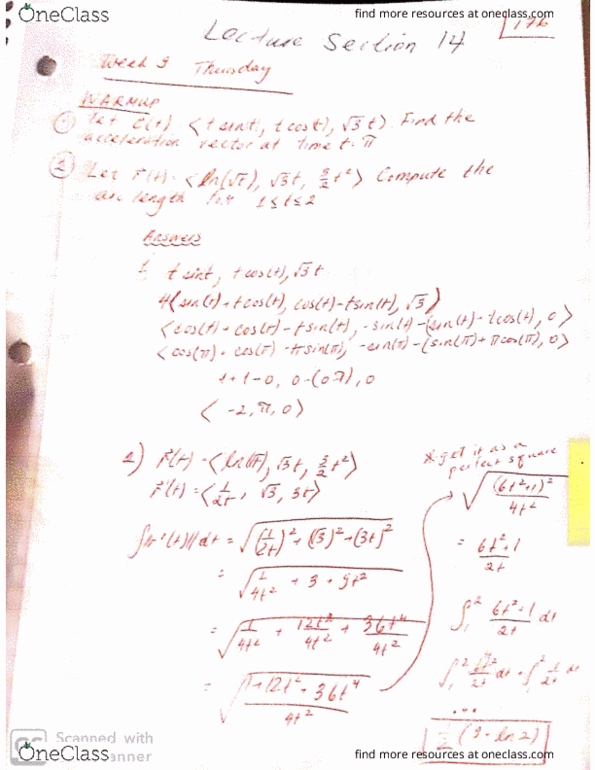 OneClass
find more resources at oneclass.com
176
Lecture Section 14
Week 9 Thursday
WARMUP
① Let c(t) ⟨t sin(t), t cos(t), √3 t⟩. Find the
acceleration vector at time t= π
② Let r(t) = ⟨ln(√t), √3t, 3/2 t²⟩ Compute the
arc length for 1≤t≤2
Answers
1. t sint, t cos(t), √3 t
(sin(t) + t cos(t), cos(t) - t sin(t), √3)
⟨cos(t) + cos(t) - t sin(t), -sin(t) - (sin(t) - t cos(t), 0⟩
⟨cos(π) + cos(π) - π sin(π), -sin(π) - (sin(π) + π cos(π), 0⟩
0
⟨-2, π, 0⟩
2) r(t) = ⟨ln(√t), √3t, 3/2 t²⟩
r'(t) = ⟨1/2t, √3, 3t⟩
∫||r'(t)||dt = √(1/2t)² + (√3)² + (3t)²
= √1/4t² + 3 + 9t²
= √1/4t² + 12t²/4t² + 36t⁴/4t²
= √1+12t² + 36t⁴/4t²
*get it as a
perfect square
√(6t²+1)²/4t²
= 6t²+1/2t
∫₁² 6t²+1/2t dt
...
1/2 (9 - ln2)
Scanned with
OneClass
find more resources at oneclass.com